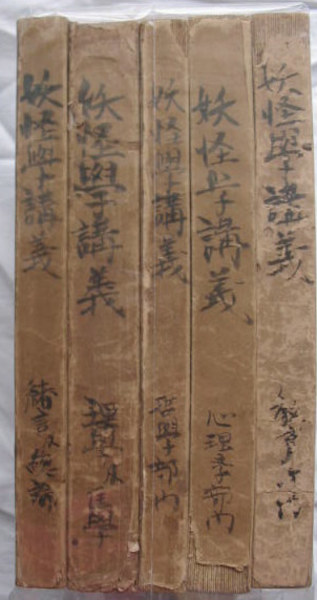 妖怪學講義
緒言及總論
妖怪學講義
理學及医學
妖怪學講義
哲學部門
妖怪学講義
心理学部門
妖怪學講義